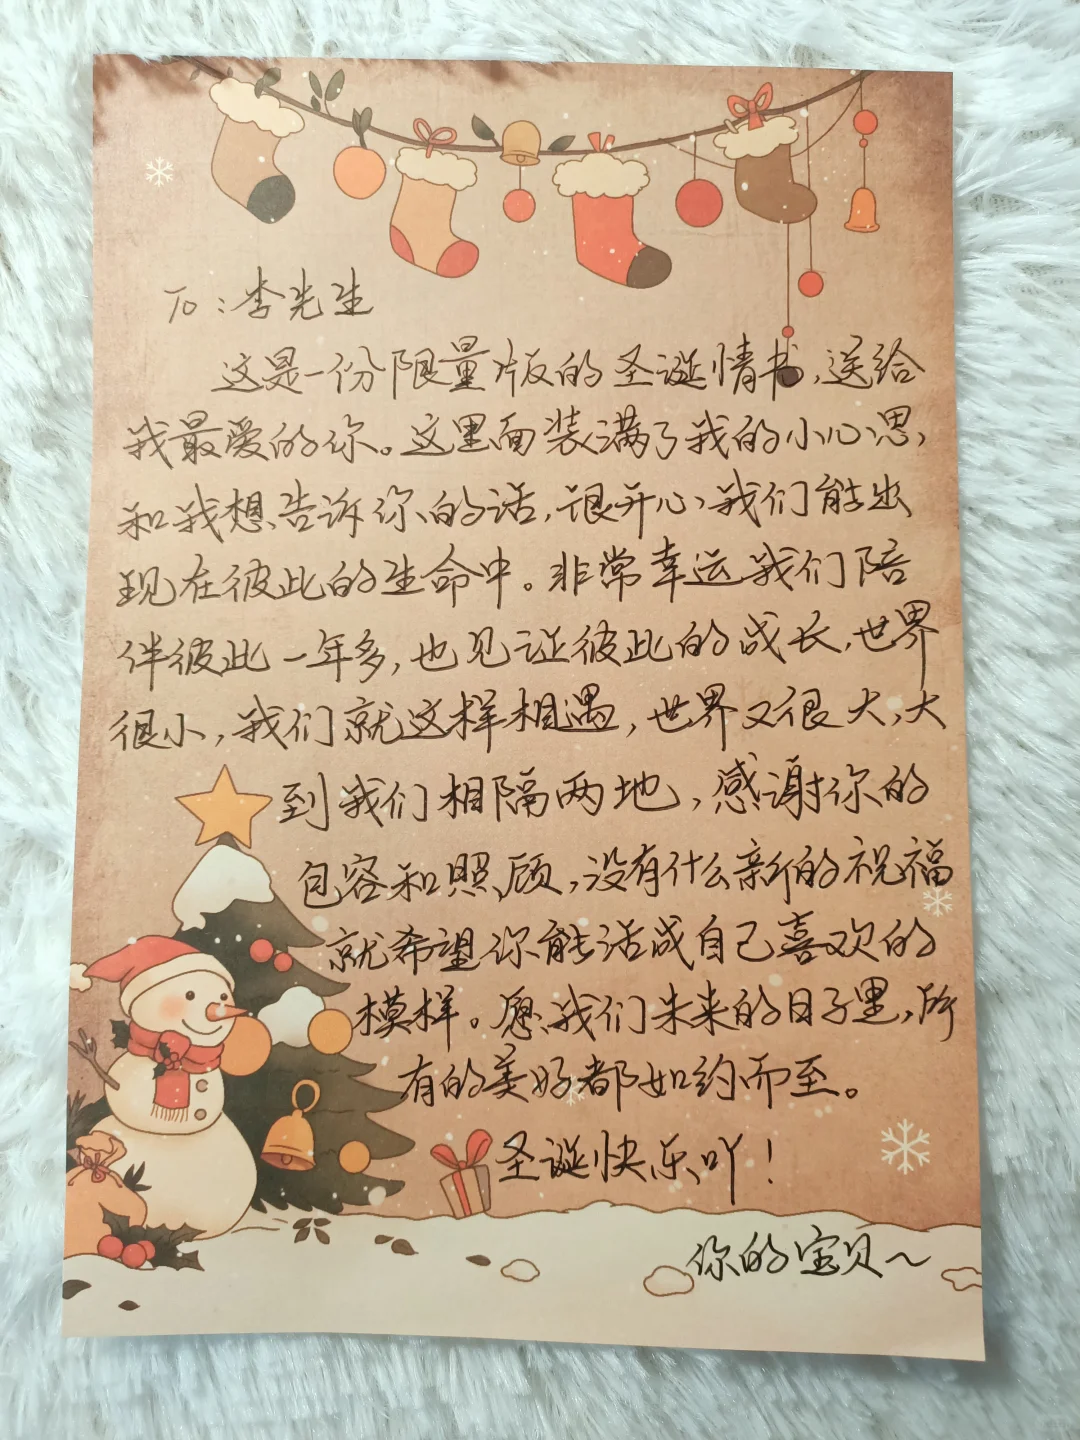 To：李先生
这是一份限量版的圣诞情书，送给
我最爱的你。这里面装满了我的小心思，
和我想告诉你的话，很开心，我们能出
现在彼此的生命中。非常幸运我们陪
伴彼此一年多，也见证彼此的成长，世界
很小，我们就这样相遇，世界又很大，大
到我们相隔两地，感谢你的
包容和照顾，没有什么新的祝福
就希望你能活成自己喜欢的
模样。愿我们未来的日子里，所
有的美好都如约而至。
圣诞快乐吖！
你的宝贝～